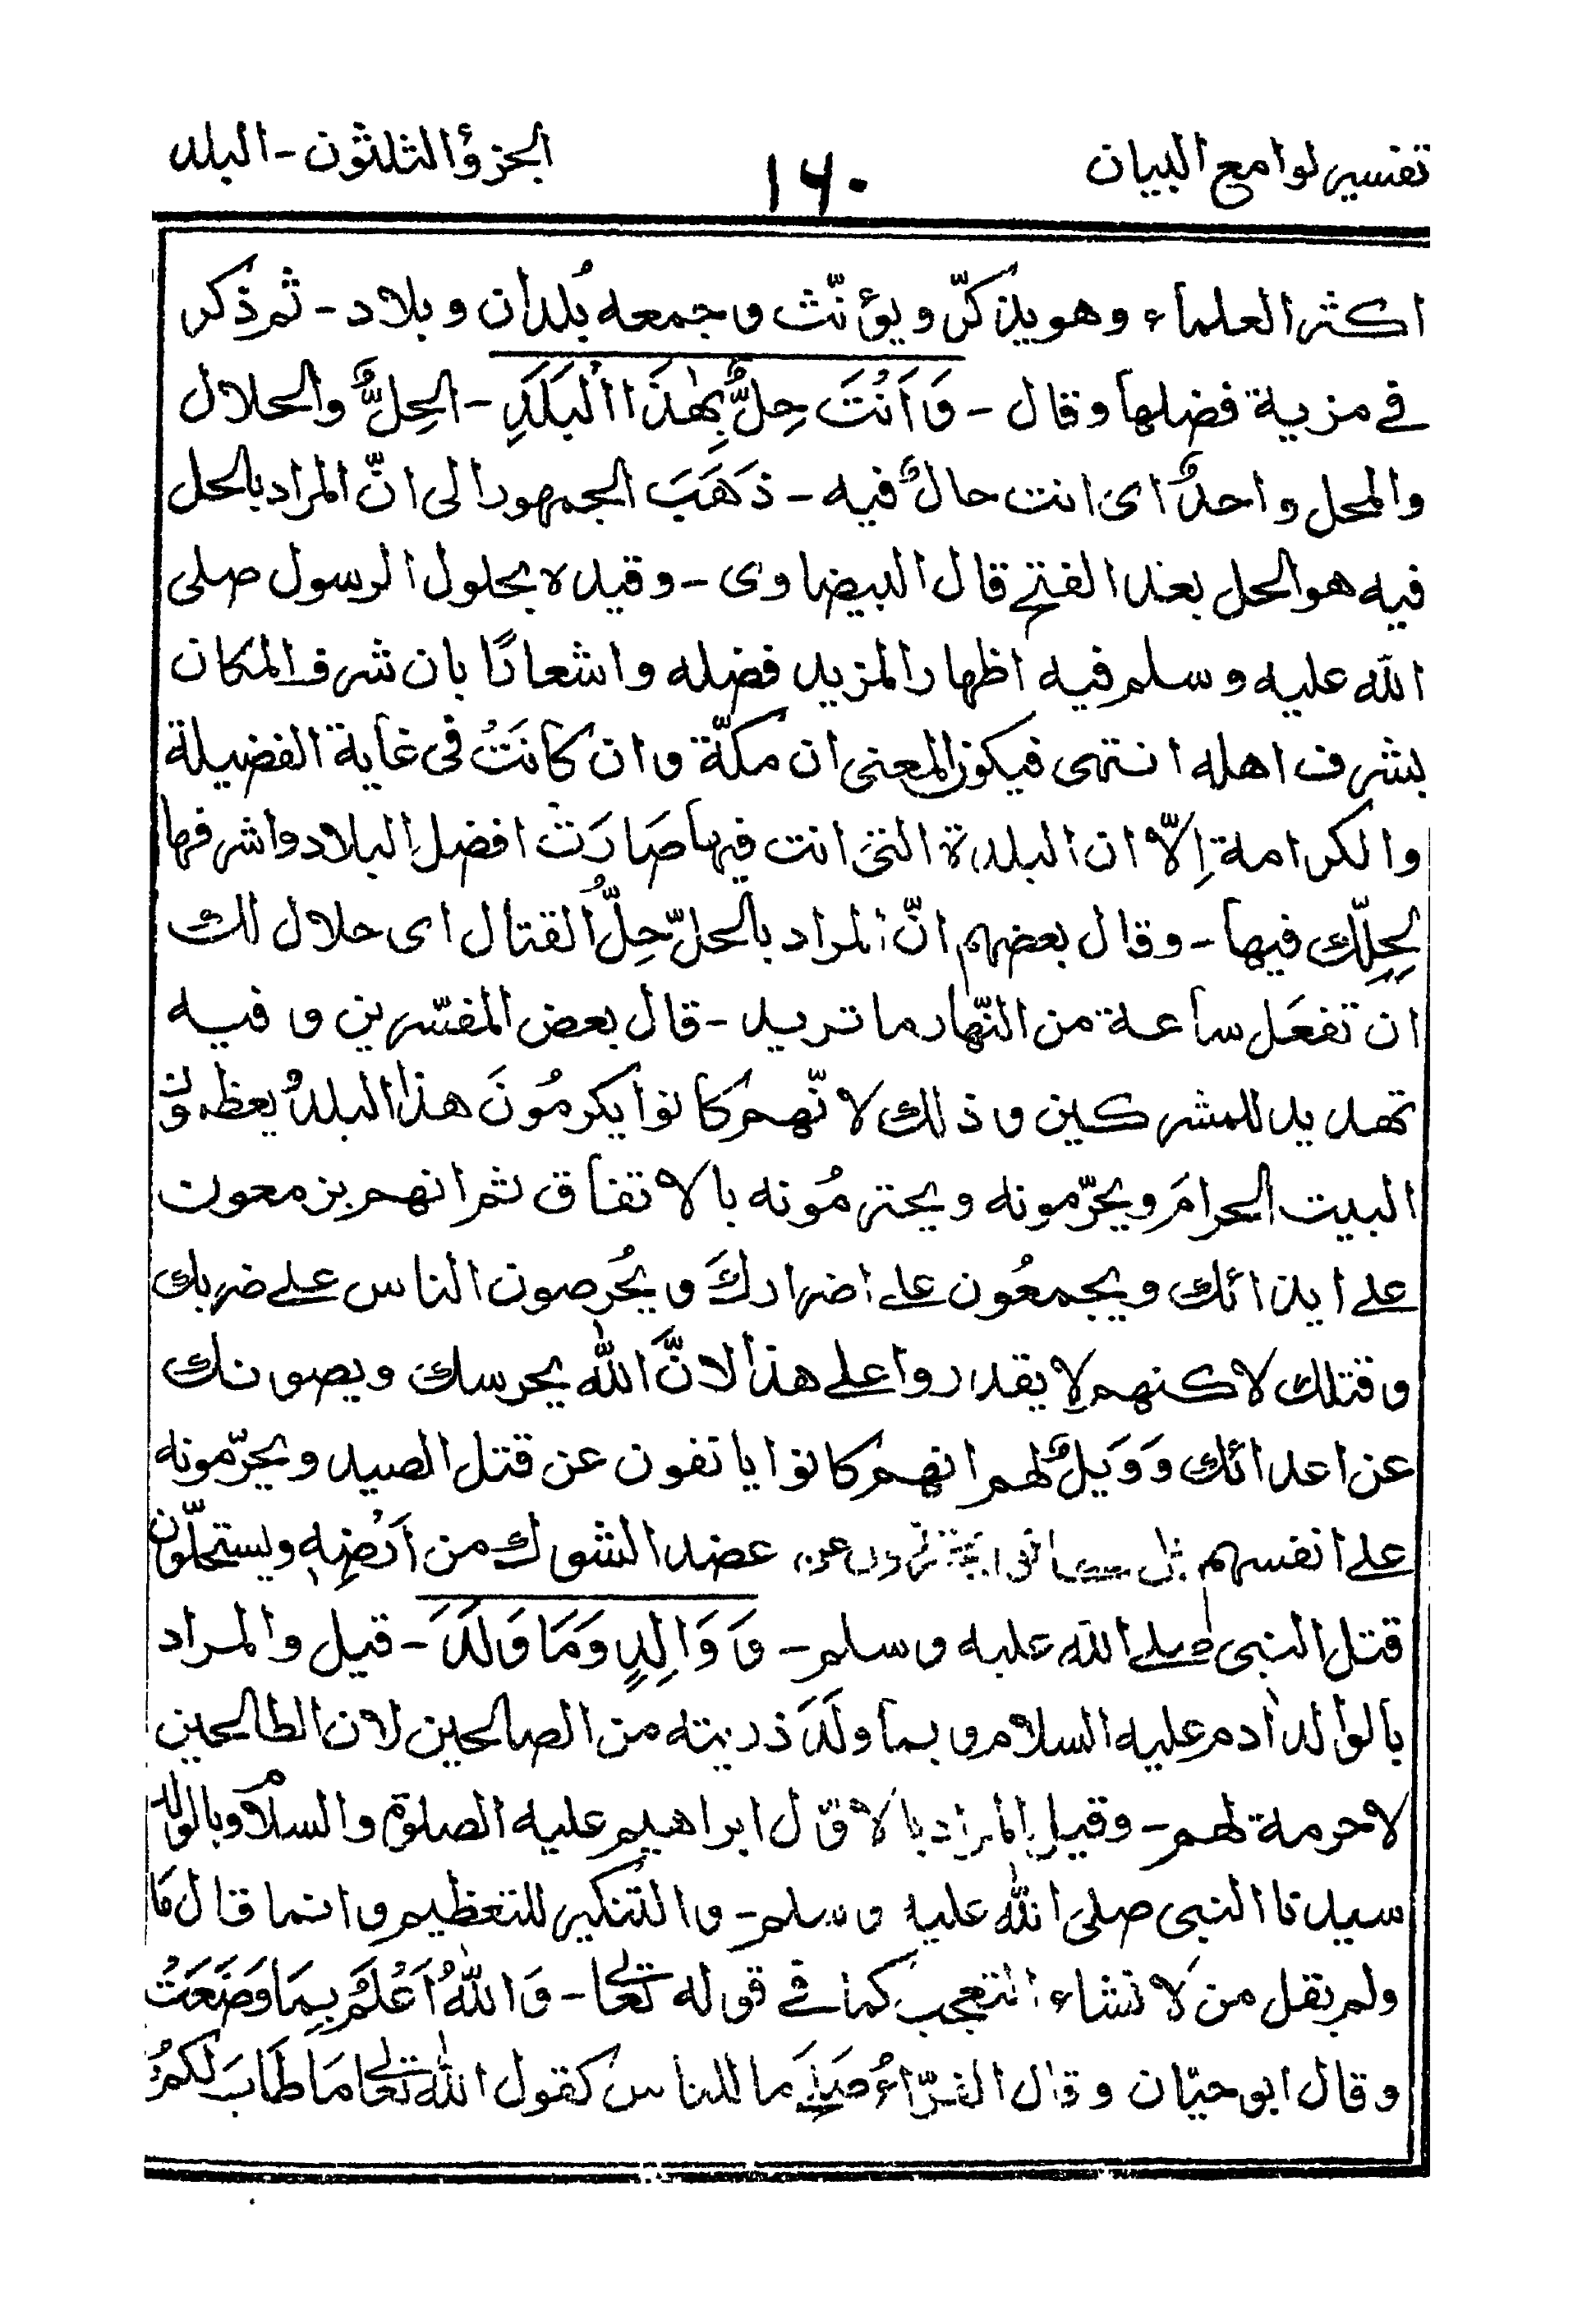 تفسير لوامع البيان
١٦٠
الجزؤ الثلثون - البلد
اكثر العلماء وهو يذكّر ويؤنّث وجمعه بُلدان وبلاد - ثم ذكر
في مزية فضلها وقال - وَاَنْتَ حِلٌّ بِهٰذَا الْبَلَدِ - الحِلُّ والحلال
والمحل واحدٌ اى انت حالٌ فيه - ذَهَبَ الجمهور الى انّ المراد بالحل
فيه هو الحل بعد الفتح قال البيضاوى - وقيده بحلول الرسول صلى
الله عليه وسلم فيه اظهارا لمزيد فضله واشعارًا بان شرف المكان
بشرف اهله انتهى فيكون المعنى ان مكّة وان كانَتْ فى غاية الفضيلة
والكرامة اِلّا ان البلدة التى انت فيها صَارَتْ افضل البلاد واشرفها
لِحِلّك فيها - وقال بعضهم انّ المراد بالحلّ حِلُّ القتال اى حلال لك
ان تفعَل ساعة من النّهار ما تريد - قال بعض المفسّرين وفيه
تهديد للمشركين وذلك لانّهم كانوا يكرمُونَ هذا البلدُ يعظمون
البيت الحرامَ ويحرّمونه ويحترمُونه بالاتفاق ثم انهم يزمعون
على ايذائك ويجمعُون على اضراركَ ويُحرصون الناس على ضربك
وقتلك لاكنهم لا يقدروا على هذا لانَّ اللهَ يحرسك ويصونك
عن اعدائك وَوَيلٌ لهم انهم كانوا ياتفون عن قتل الصيد ويحرّمونه
على انفسهم عضد الشوك من اَرْضِهٖ ويستحلّون
قتل النبى صلى الله عليه وسلم - وَوَالِدٍ وَمَا وَلَدَ - قيل والمراد
بالوالد اٰدم عليه السلام وبما ولَدَ ذريته من الصالحين لان الطالحين
لا حرمة لهم - وقيل المراد بالاوّل ابراهيم عليه الصلوة والسلام وبالولد
سيدنا النبى صلى الله عليه وسلم - والتنكير للتعظيم وانما قال مَا
ولم يقل من لانشاء التعجب كما في قوله تعالى - وَاللهُ اَعْلَمُ بِمَا وَضَعَتْ
وقال ابو حيّان وقال الفرّاءُ صَلَحَ ما للناس كقول الله تعالى مَا طَابَ لَكُمْ